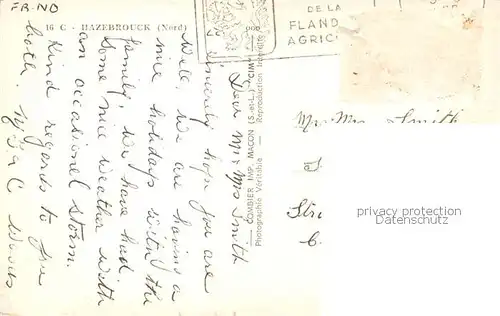 FR-ND
16 C - HAZEBROUCK (Nord)
DE LA
FLAND
AGRIC
Dear Mr & Mrs Smith
sincerely hope you are
Well. We are having a
nice holidays with the
family, We have had
some nice weather with
an occational storm.
Kind regards to you
both. Woods
COMBIER IMP. MACON (S.-et-L.) "CIM"
Photographie Véritable - Reproduction Interdite
Mr Mrs Smith
Str
privacy protection
Datenschutz